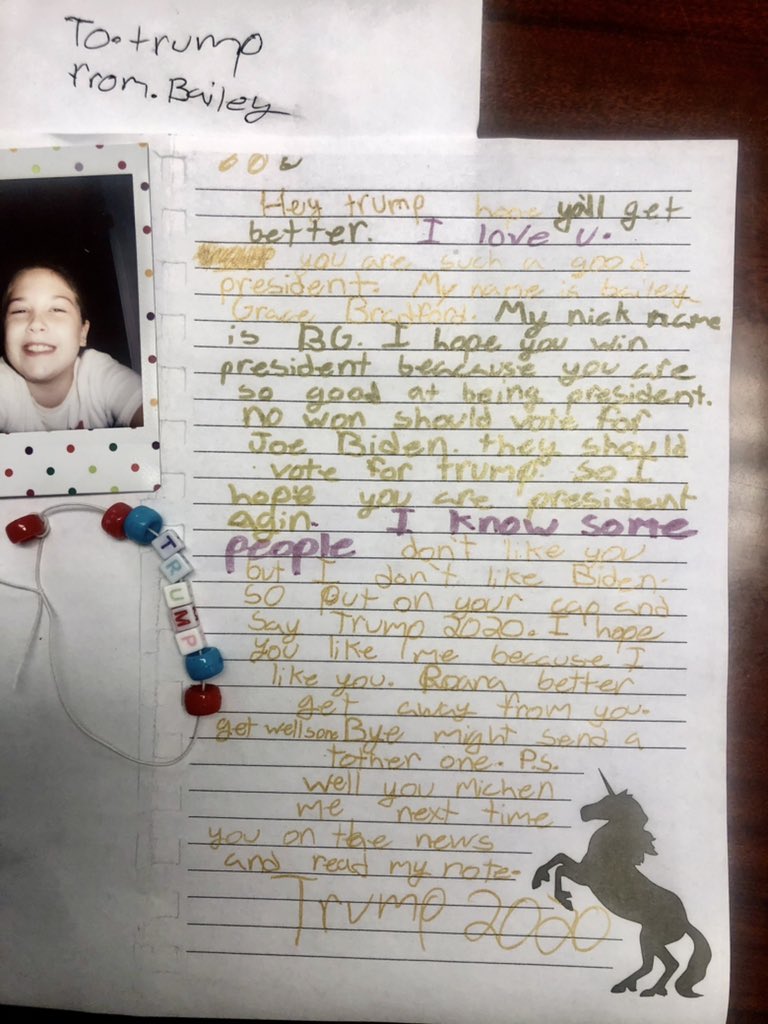 To. trump
from. Bailey
Hey trump hope yo'll get
better. I love u.
you are such a good
president. My name is bailey
Grace Bradford. My nick name
is BG. I hope you win
president beacause you are
so good at being president.
no won should vote for
Joe Biden. they should
vote for trump. So I
hope you are president
agin. I know some
people don't like you
but I don't like Biden.
SO put on your cap and
say Trump 2020. I hope
you like me because I
like you. better
get away from you.
get well sone Bye might send a
tother one. P.s.
well you michen
me next time
you on the news
and read my note.
Trump 2020
TRUMP